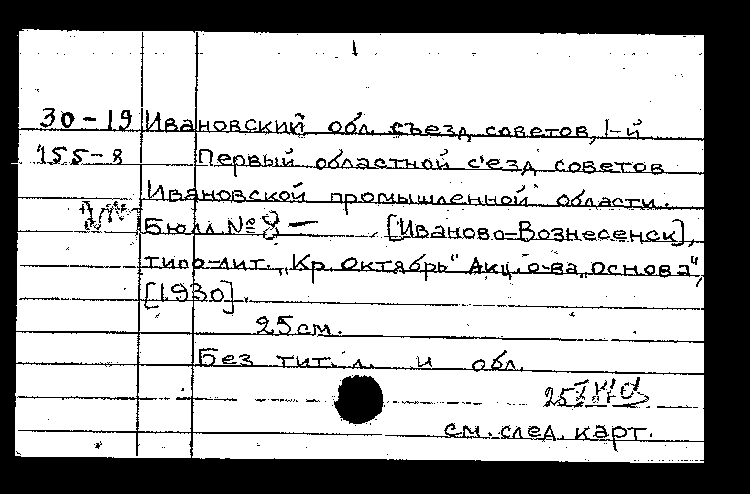 1
30-19 Ивановский обл. съезд советов, 1-й
155-8 Первый областной с'езд советов
Ивановской промышленной области.
Бюлл. № 8 – [Иваново-Вознесенск],
типо-лит. „Кр. Октябрь“ Акц. о-ва „Основа“,
[1930].
25 см.
Без тит. л. и обл.
см. след. карт.